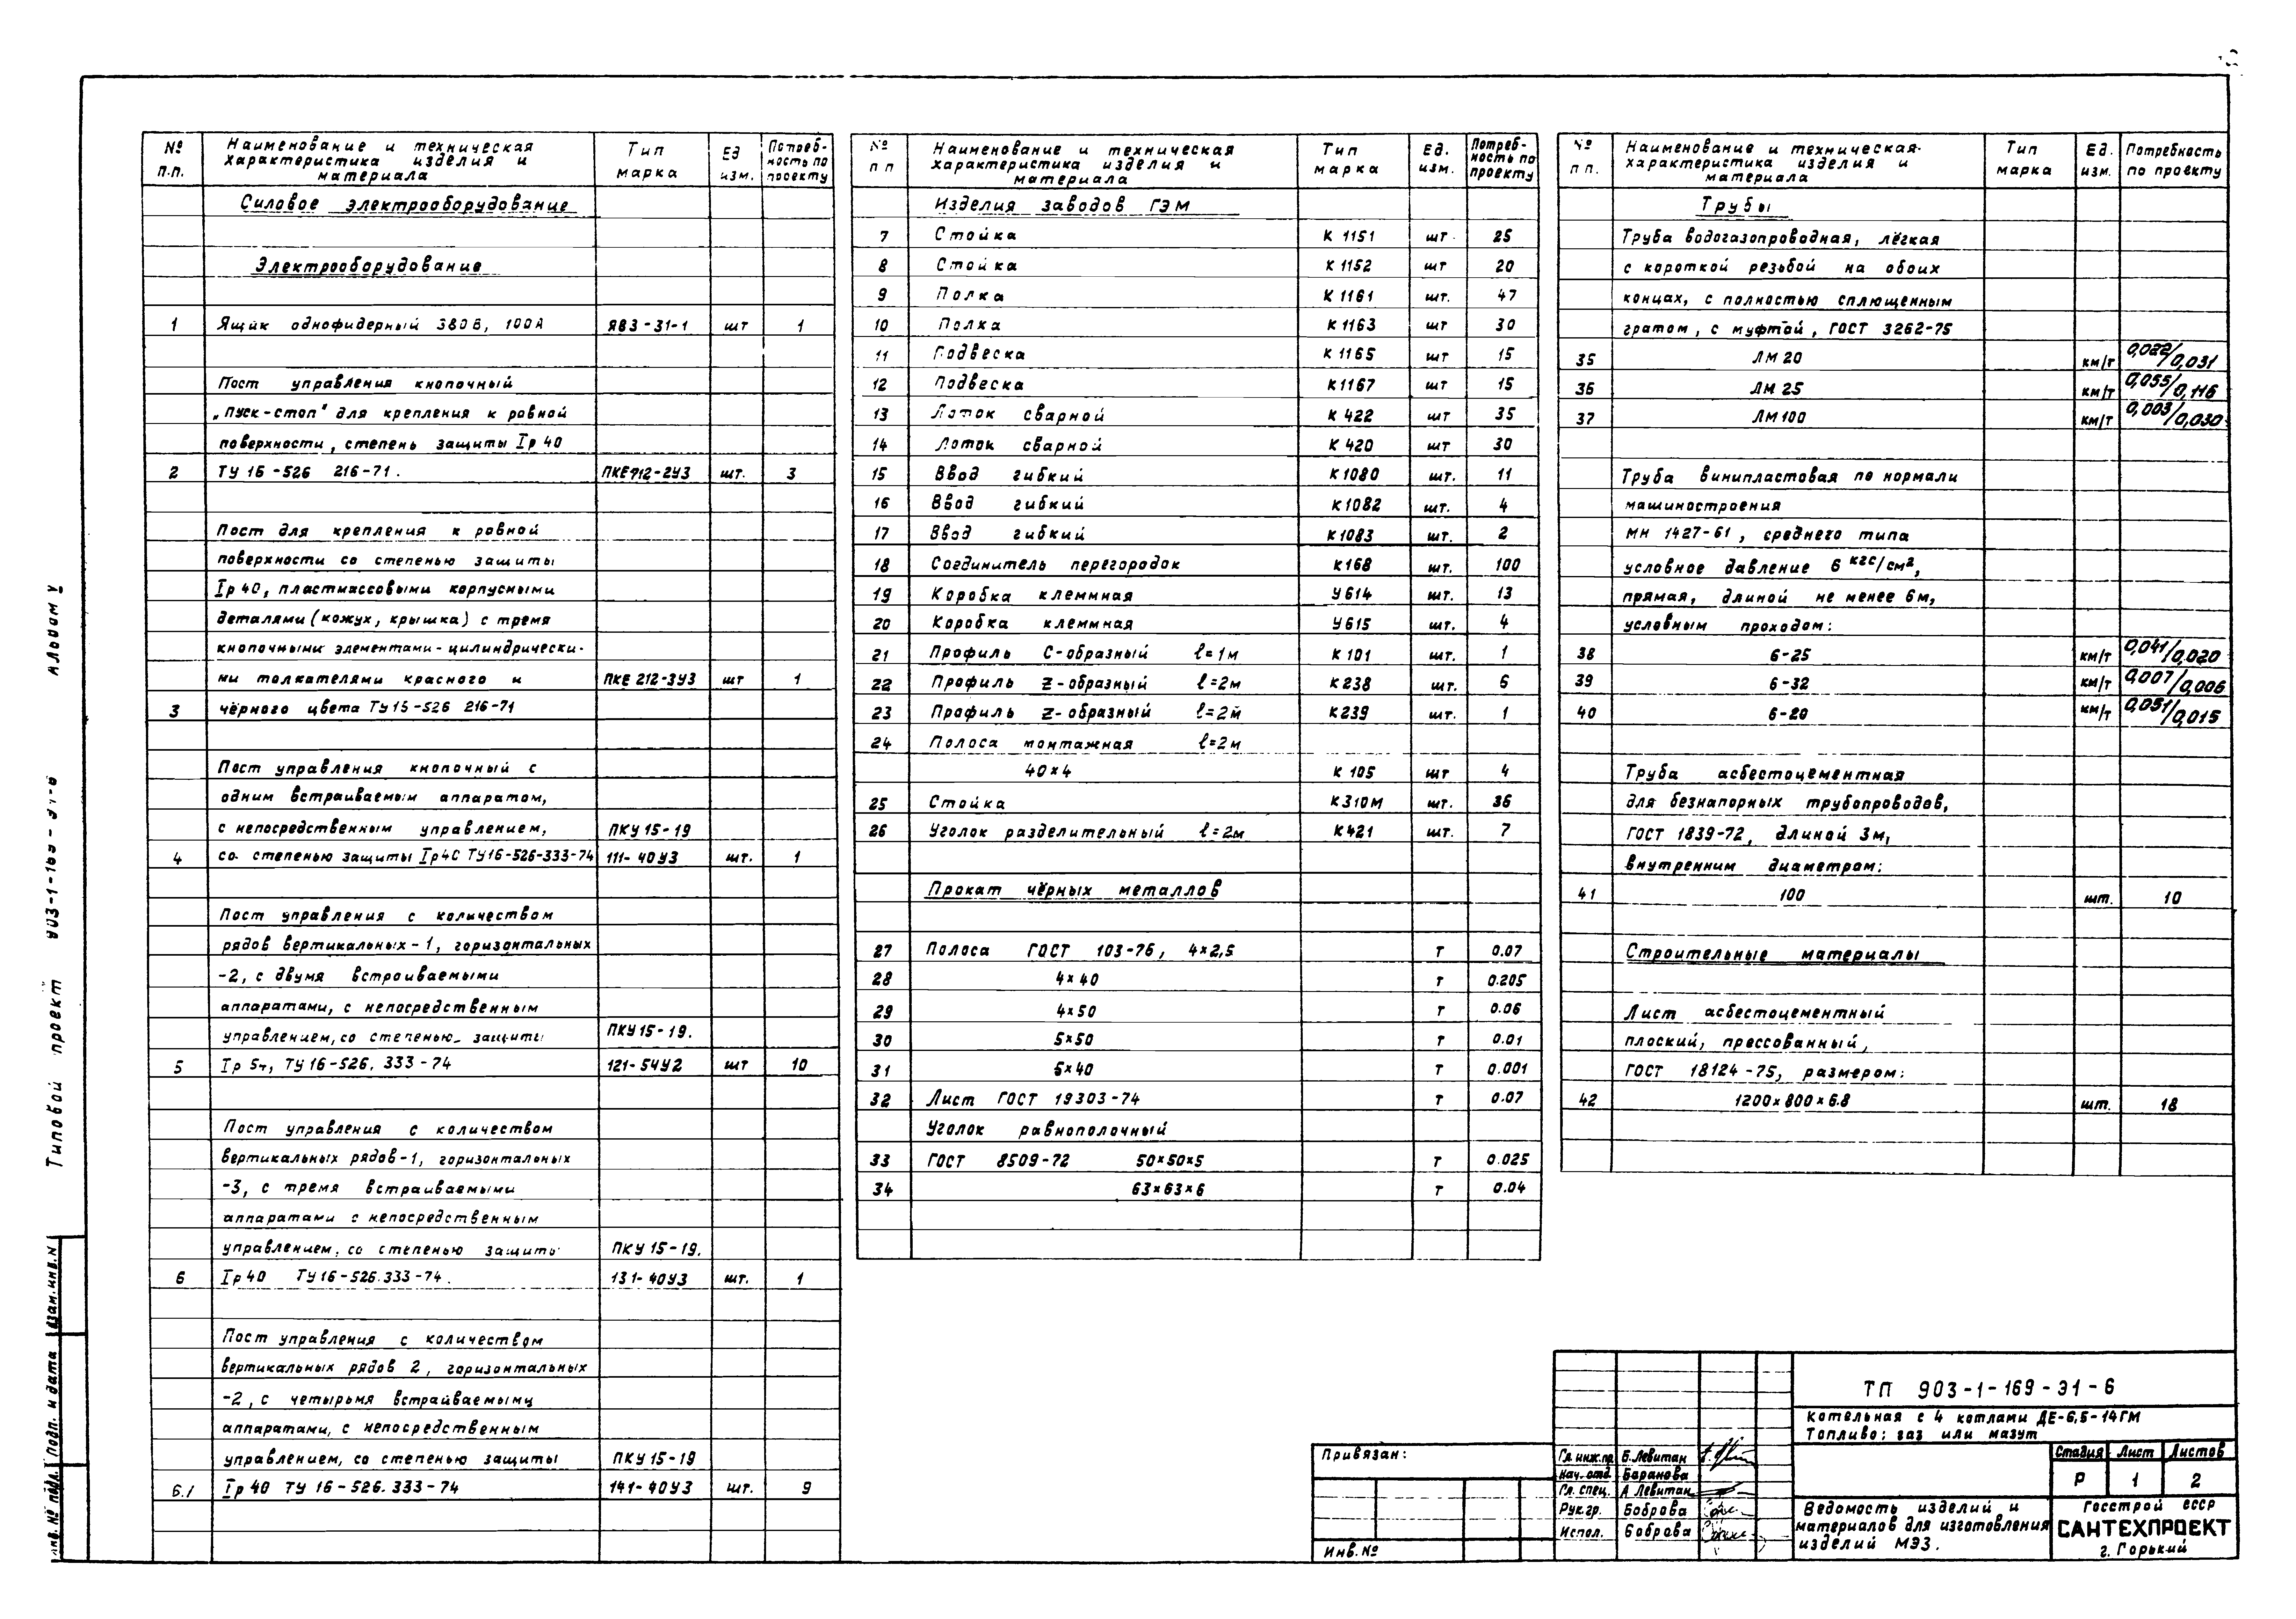 № п.п. Наименование и техническая характеристика изделия и материала Тип марка Ед изм. Потреб-ность по проекту
Силовое электрооборудование
Электрооборудование
1 Ящик однофидерный 380В, 100А ЯВЗ-31-1 шт 1
Пост управления кнопочный
„Пуск-стоп" для крепления к ровной
поверхности, степень защиты Iр 40
2 ТУ 16-526 216-71. ПКЕ712-2У3 шт. 3
Пост для крепления к ровной
поверхности со степенью защиты
Iр 40, пластмассовыми корпусными
деталями (кожух, крышка) с тремя
кнопочными элементами-цилиндрически-
ми толкателями красного и ПКЕ 212-3У3 шт 1
3 чёрного цвета ТУ16-526 216-71
Пост управления кнопочный с
одним встраиваемым аппаратом,
с непосредственным управлением, ПКУ 15-19
4 со степенью защиты Iр40 ТУ16-526-333-74 111-40У3 шт. 1
Пост управления с количеством
рядов вертикальных-1, горизонтальных
-2, с двумя встроиваемыми
аппаратами, с непосредственным
управлением, со степенью защиты ПКУ15-19.
5 Iр 54, ТУ 16-526. 333-74 121-54У2 шт 10
Пост управления с количеством
вертикальных рядов-1, горизонтальных
-3, с тремя встраиваемыми
аппаратами с непосредственным
управлением, со степенью защиты ПКУ 15-19.
6 Iр 40 ТУ16-526.333-74. 131-40У3 шт. 1
Пост управления с количеством
вертикальных рядов 2, горизонтальных
-2, с четырьмя встраиваемыми
аппаратами, с непосредственным
управлением, со степенью защиты ПКУ 15-19
6.1 Iр 40 ТУ 16-526.333-74 141-40У3 шт. 9
№ п п Наименование и техническая характеристика изделия и материала Тип марка Ед. изм. Потреб-ность по проекту
Изделия заводов ГЭМ
7 Стойка К 1151 шт. 25
8 Стойка К 1152 шт 20
9 Полка К 1161 шт. 47
10 Полка К 1163 шт 30
11 Подвеска К 1165 шт 15
12 Подвеска К1167 шт 15
13 Лоток сварной К 422 шт 35
14 Лоток сварной К 420 шт 30
15 Ввод гибкий К1080 шт. 11
16 Ввод гибкий К1082 шт. 4
17 Ввод гибкий К1083 шт. 2
18 Соединитель перегородок К168 шт. 100
19 Коробка клеммная У614 шт. 13
20 Коробка клеммная У615 шт. 4
21 Профиль С-образный ℓ=1м К 101 шт. 1
22 Профиль Z-образный ℓ=2м К238 шт. 6
23 Профиль Z-образный ℓ=2м К239 шт. 1
24 Полоса монтажная ℓ=2м
40×4 К 105 шт 4
25 Стойка К310М шт. 36
26 Уголок разделительный ℓ=2м К421 шт. 7
Прокат чёрных металлов
27 Полоса ГОСТ 103-76, 4×2,5 т 0.07
28 4×40 т 0.205
29 4×50 т 0.06
30 5×50 т 0.01
31 5×40 т 0.001
32 Лист ГОСТ 19303-74 т 0.07
Уголок равнополочный
33 ГОСТ 8509-72 50×50×5 т 0.025
34 63×63×6 т 0.04
№ п п. Наименование и техническая характеристика изделия и материала Тип марка Ед. изм. Потребность по проекту
Трубы
Труба водогазопроводная, лёгкая
с короткой резьбой на обоих
концах, с полностью сплющенным
гратом, с муфтой, ГОСТ 3262-75
35 ЛМ 20 км/т 0,022/0,031
36 ЛМ 25 км/т 0,055/0,116
37 ЛМ100 км/т 0,003/0,030
Труба винипластовая по нормали
машиностроения
МН 1427-61, среднего типа
условное давление 6 кгс/см²,
прямая, длиной не менее 6м,
условным проходом:
38 6-25 км/т 0,041/0,020
39 6-32 км/т 0,007/0,006
40 6-20 км/т 0,051/0,015
Труба асбестоцементная
для безнапорных трубопроводов,
ГОСТ 1839-72, длиной 3м,
внутренним диаметром:
41 100 шт. 10
Строительные материалы
Лист асбестоцементный
плоский, прессованный,
ГОСТ 18124-75, размером:
42 1200×800×6.8 шт. 18
Альбом V
Типовой проект 903-1-169-Э1-6
Взам.инв.N
Подп. и дата
Инв.№ подл.
Привязан:
Инв.№
ТП 903-1-169-Э1-6
Котельная с 4 котлами ДЕ-6,5-14ГМ
Топливо: газ или мазут
Стадия Лист Листов
Р 1 2
Гл.инж.пр Б.Левитан
Нач.отд. Баранова
Гл.спец. А Левитан
Рук.гр. Боброва
Испол. Боброва
Ведомость изделий и
материалов для изготовления
изделий МЭЗ.
Госстрой СССР
САНТЕХПРОЕКТ
г. Горький